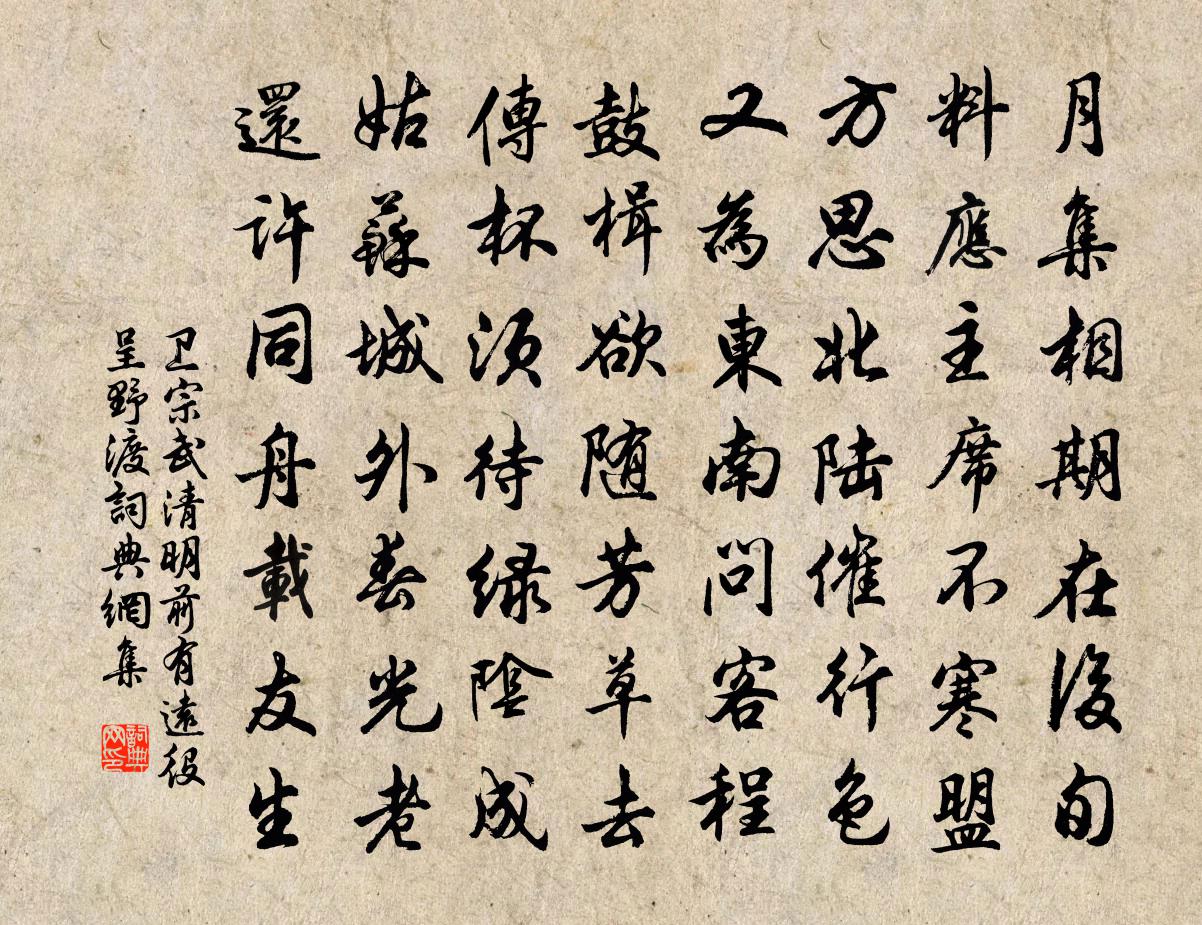 月集相期在後旬
料應主席不寒盟
方思北陆催行色
又為東南問客程
鼓楫欲随芳草去
傳杯须待緑陰成
姑蘇城外春光老
還許同舟載友生
卫宗武清明前有遠役
呈野渡詞典網集
詞典网印